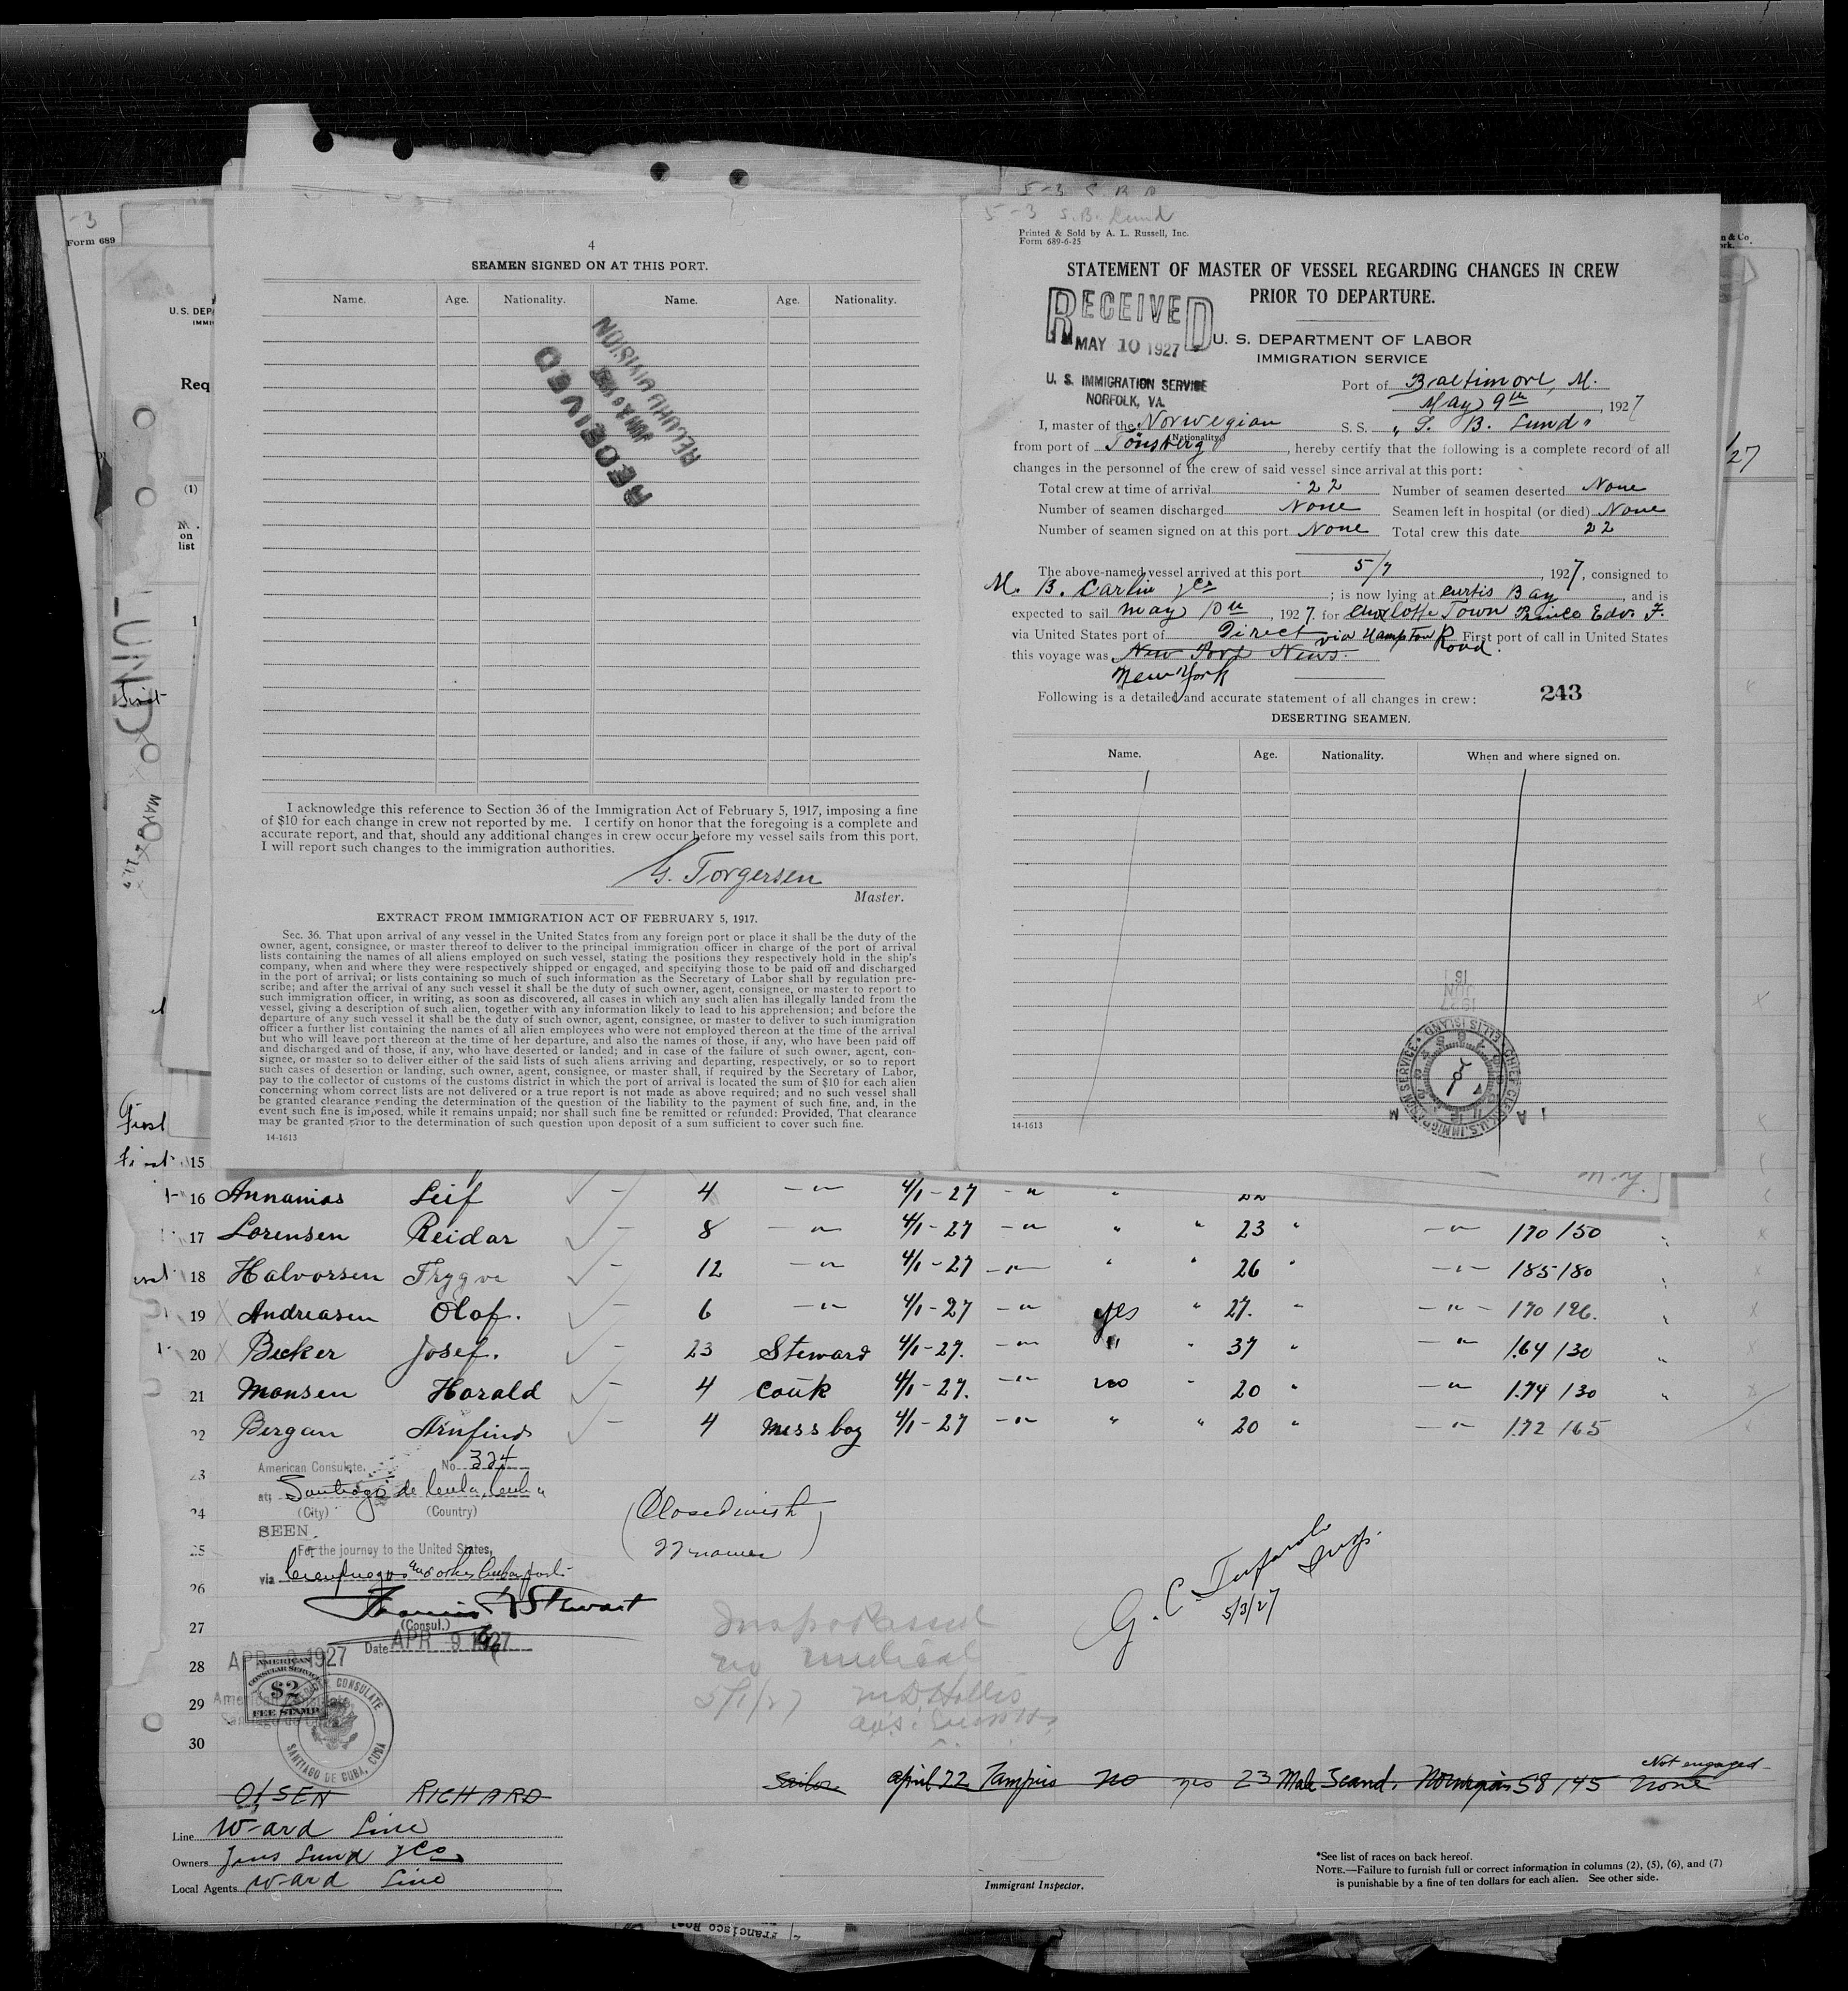 5-3 S. B. Lund
-3
Form 689
U. S. DEP
IMMI
Req
(1)
on
list
1
LUND
First
First
4
SEAMEN SIGNED ON AT THIS PORT.
Name. Age. Nationality. Name. Age. Nationality.
RECEIVED
I acknowledge this reference to Section 36 of the Immigration Act of February 5, 1917, imposing a fine
of $10 for each change in crew not reported by me. I certify on honor that the foregoing is a complete and
accurate report, and that, should any additional changes in crew occur before my vessel sails from this port,
I will report such changes to the immigration authorities.
G. Torgersen
Master.
EXTRACT FROM IMMIGRATION ACT OF FEBRUARY 5, 1917.
Sec. 36. That upon arrival of any vessel in the United States from any foreign port or place it shall be the duty of the
owner, agent, consignee, or master thereof to deliver to the principal immigration officer in charge of the port of arrival
lists containing the names of all aliens employed on such vessel, stating the positions they respectively hold in the ship's
company, when and where they were respectively shipped or engaged, and specifying those to be paid off and discharged
in the port of arrival; or lists containing so much of such information as the Secretary of Labor shall by regulation pre-
scribe; and after the arrival of any such vessel it shall be the duty of such owner, agent, consignee, or master to report to
such immigration officer, in writing, as soon as discovered, all cases in which any such alien has illegally landed from the
vessel, giving a description of such alien, together with any information likely to lead to his apprehension; and before the
departure of any such vessel it shall be the duty of such owner, agent, consignee, or master to deliver to such immigration
officer a further list containing the names of all alien employees who were not employed thereon at the time of the arrival
but who will leave port thereon at the time of her departure, and also the names of those, if any, who have been paid off
and discharged and of those, if any, who have deserted or landed; and in case of the failure of such owner, agent, con-
signee, or master so to deliver either of the said lists of such aliens arriving and departing, respectively, or so to report
such cases of desertion or landing, such owner, agent, consignee, or master shall, if required by the Secretary of Labor,
pay to the collector of customs of the customs district in which the port of arrival is located the sum of $10 for each alien
concerning whom correct lists are not delivered or a true report is not made as above required; and no such vessel shall
be granted clearance pending the determination of the question of the liability to the payment of such fine, and, in the
event such fine is imposed, while it remains unpaid; nor shall such fine be remitted or refunded: Provided, That clearance
may be granted prior to the determination of such question upon deposit of a sum sufficient to cover such fine.
14-1613
Printed & Sold by A. L. Russell, Inc.
Form 689-6-25
STATEMENT OF MASTER OF VESSEL REGARDING CHANGES IN CREW
PRIOR TO DEPARTURE.
RECEIVED
MAY 10 1927
U. S. IMMIGRATION SERVICE
NORFOLK, VA.
U. S. DEPARTMENT OF LABOR
IMMIGRATION SERVICE
Port of Baltimore, M.
May 9th, 1927
I, master of the Norwegian S. S. "S. B. Lund"
(Nationality)
from port of Tönsberg, hereby certify that the following is a complete record of all
changes in the personnel of the crew of said vessel since arrival at this port:
Total crew at time of arrival 22 Number of seamen deserted None
Number of seamen discharged None Seamen left in hospital (or died) None
Number of seamen signed on at this port None Total crew this date 22
The above-named vessel arrived at this port 5/7, 1927, consigned to
M. B. Carlin & Co; is now lying at Curtis Bay, and is
expected to sail May 10th, 1927. for Charlotte Town Prince Edw.
via United States port of Direct via Hampton Road. First port of call in United States
this voyage was New Port News.
New York
Following is a detailed and accurate statement of all changes in crew: 243
DESERTING SEAMEN.
Name. Age. Nationality. When and where signed on.
14-1613
15
16 Annanias Leif 4 4/1-27
17 Lorensen Reidar 8 4/1-27 " " 23 " 170 150
18 Halvorsen Trygve 12 4/1-27 " " 26 " 185 180
19 Andreasen Olof. 6 4/1-27 yes " 27. " 170 126.
20 Becker Josef. 23 Steward 4/1-27. " " 37 " 1.64 130
21 Monsen Harald 4 Couk 4/1-27. no " 20 " 1.74 130
22 Bergan Arnfind 4 mess boy 4/1-27 " " 20 " 1.72 165
23
24
25
26
27
28
29
30
American Consulate. No 324
at: Santiago de Cuba, Cuba
(City) (Country)
SEEN.
For the journey to the United States,
via Cienfuegos and other Cuban ports
Stewart
(Consul.)
Date APR 9 1927
APR 9 1927
AMERICAN
CONSULAR SERVICE
$2
FEE STAMP
American Consulate
CONSULATE
SANTIAGO DE CUBA, CUBA
(Closed with
22 names)
5/3/27
Insp & Passed
no medical
5/1/27
OlSEN RICHARD Sailor april 22 Tampico no yes 23 Male Scand. Norwegian 58 145 none
Not engaged
Line Ward Line
Owners Jens Lund & Co
Local Agents Ward Line
Immigrant Inspector.
*See list of races on back hereof.
NOTE.—Failure to furnish full or correct information in columns (2), (5), (6), and (7)
is punishable by a fine of ten dollars for each alien. See other side.